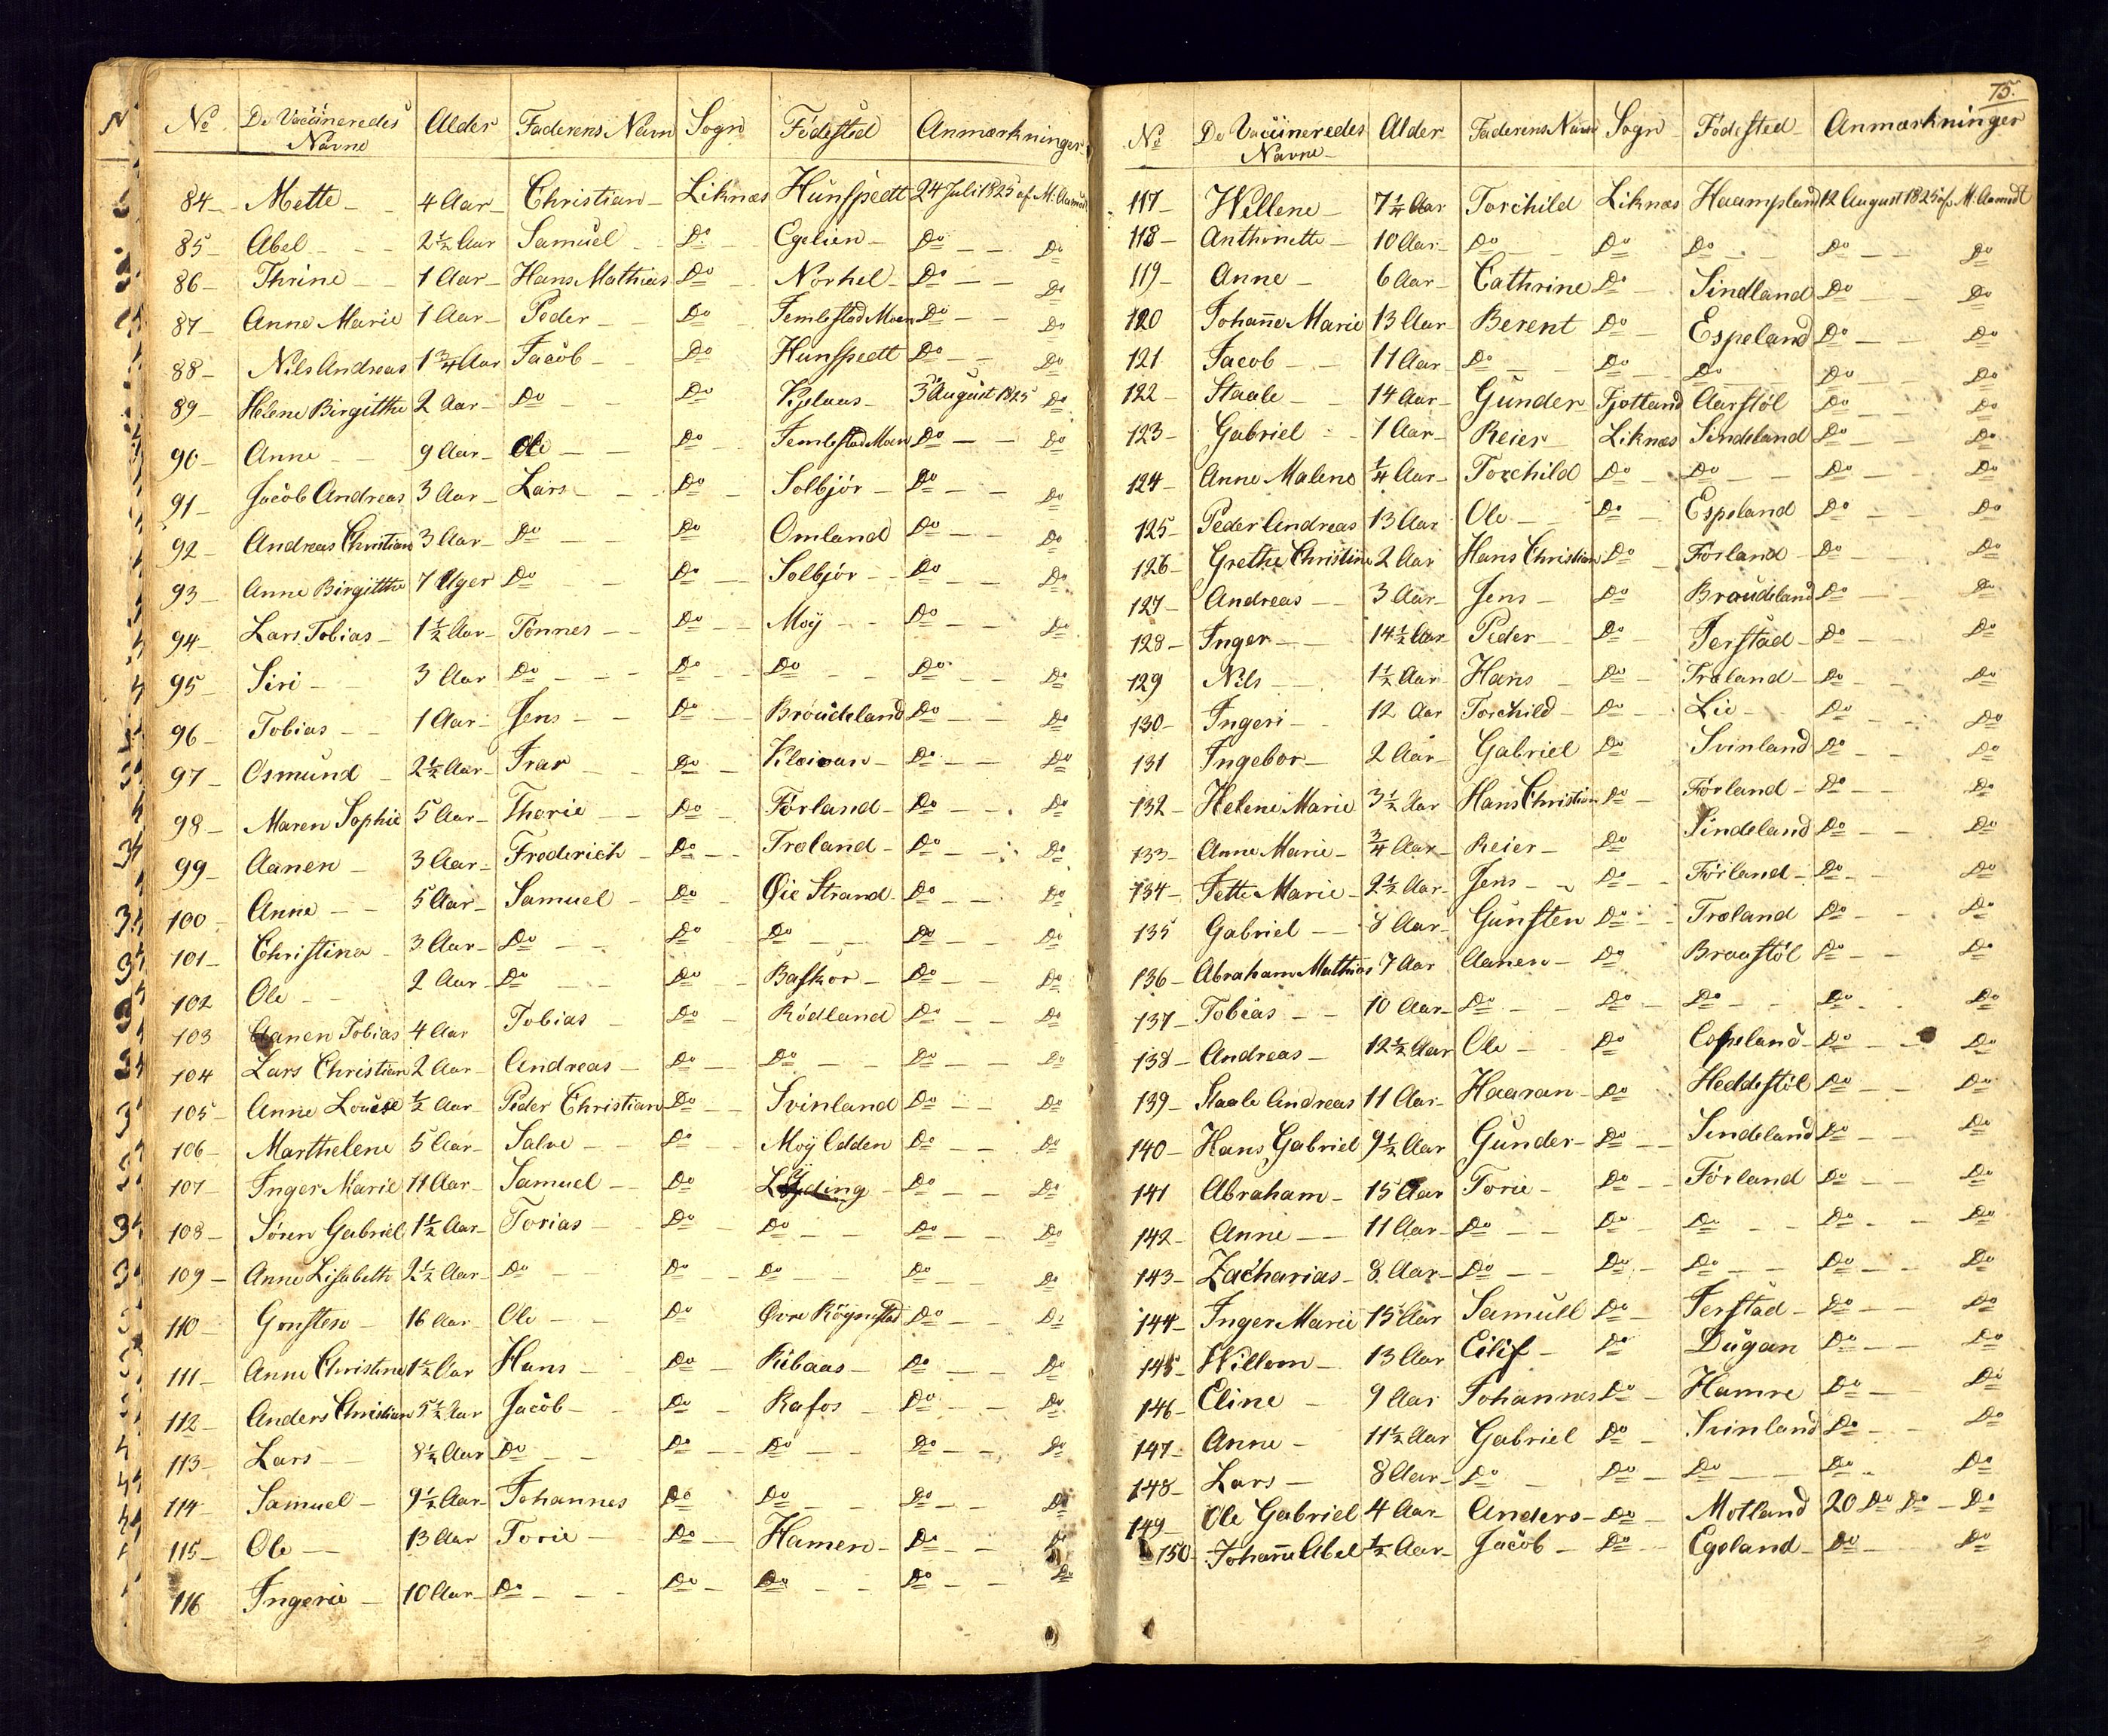 No De Vaccineredes Navne Alder Faderens Navn Sogn Födested Anmærkninger
84 Mette 4 Aar Christian Liknæs Hunspedt 24 Juli 1825 af M: Aamodt
85 Abel 2½ Aar Samuel Do Egelien Do Do
86 Thrine 1 Aar Hans Mathias Do Norhel Do Do
87 Anne Marie 1 Aar Peder Do Temlestad Moen Do Do
88 Nils Andreas 1¾ Aar Jacob Do Hunspedt Do Do
89 Helene Birgitthe 2 Aar Do Do Kjelaas 3 August 1825 Do
90 Anne 9 Aar Ole Do Temlestad Moen Do Do
91 Jacob Andreas 3 Aar Lars Do Solbjör Do Do
92 Andreas Christian 3 Aar Do Do Omland Do Do
93 Anne Birgitthe 7 Uger Do Do Solbjör Do Do
94 Lars Tobias 1½ Aar Tönnes Do Moÿ Do Do
95 Siri 3 Aar Do Do Do Do Do
96 Tobias 1 Aar Jens Do Broudeland Do Do
97 Osmund 2½ Aar Ivar Do Kloivan Do Do
98 Maren Sophie 5 Aar Thorie Do Förland Do Do
99 Aanen 3 Aar Frederich Do Træland Do Do
100 Anne 5 Aar Samuel Do Øie Strand Do Do
101 Christina 3 Aar Do Do Do Do Do
102 Ole 2 Aar Do Do Baskor Do Do
103 Aanen Tobias 4 Aar Tobias Do Rödland Do Do
104 Lars Christian 2 Aar Andreas Do Do Do Do
105 Anne Louise ½ Aar Peder Christian Do Svinland Do Do
106 Marthelene 5 Aar Salve Do Moÿ Odden Do Do
107 Inger Marie 11 Aar Samuel Do Lÿding Do Do
108 Sören Gabriel 1½ Aar Torias Do Do Do Do
109 Anne Lisabeth 2½ Aar Do Do Do Do Do
110 Gunsten 16 Aar Ole Do Øvre Röÿsestad Do Do
111 Anne Christine 1½ Aar Hans Do Ribaas Do Do
112 Anders Christian 5½ Aar Jacob Do Rafos Do Do
113 Lars 8½ Aar Do Do Do Do Do
114 Samuel 9½ Aar Johannes Do Do Do Do
115 Ole 13 Aar Torie Do Hamen Do Do
116 Ingerie 10 Aar Do Do Do Do Do
75.
No De Vaccineredes Navne Alder Faderens Navn Sogn Födested Anmærkninger
117 Willene 7¼ Aar Torchild Liknæs Haampland 12 August 1825 af M. Aamodt
118 Anthonette 10 Aar Do Do Do Do Do
119 Anne 6 Aar Cathrine Do Sindland Do Do
120 Johañe Marie 13 Aar Berent Do Espeland Do Do
121 Jacob 11 Aar Do Do Do Do Do
122 Staale 14 Aar Gunder Fjotland Aarstöl Do Do
123 Gabriel 1 Aar Reier Liknæs Sindeland Do Do
124 Anne Malene ¼ Aar Torchild Do Do Do Do
125 Peder Andreas 13 Aar Ole Do Espeland Do Do
126 Grethe Christine 2 Aar Hans Christian Do Förland Do Do
127 Andreas 3 Aar Jens Do Broudeland Do Do
128 Inger 14½ Aar Peder Do Jerstad Do Do
129 Nils 1½ Aar Hans Do Træland Do Do
130 Ingeri 12 Aar Torchild Do Lie Do Do
131 Ingebor 2 Aar Gabriel Do Svinland Do Do
132 Helene Marie 3½ Aar Hans Christian Do Förland Do Do
133 Anne Marie ¾ Aar Reier Do Sindeland Do Do
134 Jette Marie 2½ Aar Jens Do Förland Do Do
135 Gabriel 8 Aar Gunsten Do Træland Do Do
136 Abraham Mathias 7 Aar Aanen Do Braastöl Do Do
137 Tobias 10 Aar Do Do Do Do Do
138 Andreas 12½ Aar Ole Do Eopeland Do Do
139 Staale Andreas 11 Aar Haavan Do Heddestöl Do Do
140 Hans Gabriel 9½ Aar Gunder Do Sindeland Do Do
141 Abraham 15 Aar Torie Do Förland Do Do
142 Anne 11 Aar Do Do Do Do Do
143 Zacharias 8 Aar Do Do Do Do Do
144 Inger Marie 15 Aar Samuell Do Jerstad Do Do
145 Willom 13 Aar Eilif Do Dugan Do Do
146 Eline 9 Aar Johannes Do Hamre Do Do
147 Anne 11½ Aar Gabriel Do Svinland Do Do
148 Lars 8 Aar Do Do Do Do Do
149 Ole Gabriel 4 Aar Anders Do Motland 20 Do Do Do
150 Johañe Abel ½ Aar Jacob Do Egeland Do Do